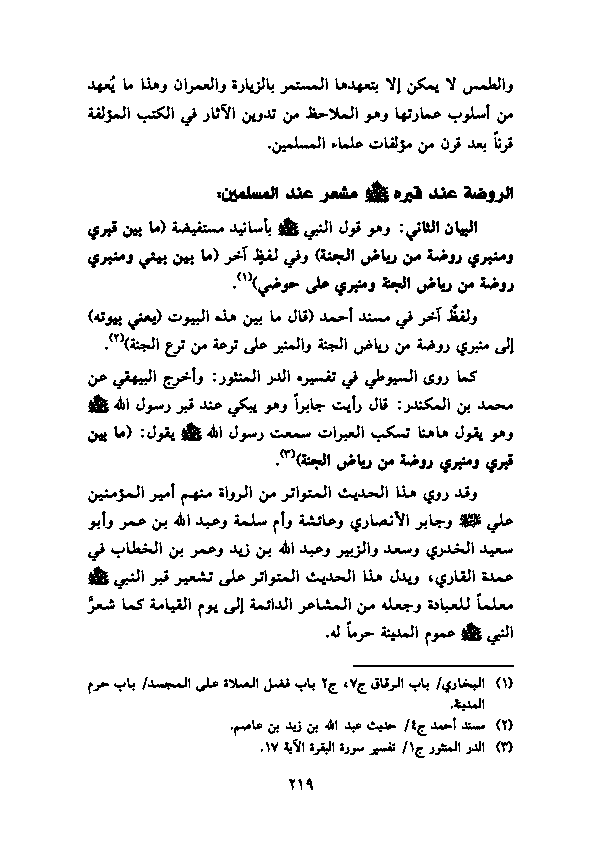 والطمس لا يمكن إلا بتعهدها المستمر بالزيارة والعمران وهذا ما يُعهد
من أسلوب عمارتها وهو الملاحظ من تدوين الآثار في الكتب المؤلفة
قرناً بعد قرن من مؤلفات علماء المسلمين.
الروضة عند قبره ﷺ مشعر عند المسلمين:
البيان الثاني: وهو قول النبي ﷺ بأسانيد مستفيضة (ما بين قبري
ومنبري روضة من رياض الجنة) وفي لفظ آخر (ما بين بيتي ومنبري
روضة من رياض الجنة ومنبري على حوضي)(١).
ولفظٌ آخر في مسند أحمد (قال ما بين هذه البيوت (يعني بيوته)
إلى منبري روضة من رياض الجنة والمنبر على ترعة من ترع الجنة)(٢).
كما روى السيوطي في تفسيره الدر المنثور: وأخرج البيهقي عن
محمد بن المكندر: قال رأيت جابراً وهو يبكي عند قبر رسول الله ﷺ
وهو يقول هاهنا تسكب العبرات سمعت رسول الله ﷺ يقول: (ما بين
قبري ومنبري روضة من رياض الجنة)(٣).
وقد روي هذا الحديث المتواتر من الرواة منهم أمير المؤمنين
علي وجابر الأنصاري وعائشة وأم سلمة وعبد الله بن عمر وأبو
سعيد الخدري وسعد والزبير وعبد الله بن زيد وعمر بن الخطاب في
عمدة القاري، ويدل هذا الحديث المتواتر على تشعير قبر النبي ﷺ
معلماً للعبادة وجعله من المشاعر الدائمة إلى يوم القيامة كما شعرَّ
النبي ﷺ عموم المدينة حرماً له.
(١) البخاري/ باب الرقاق ج٧، ج٢ باب فضل الصلاة على المجسد/ باب حرم
المدينة.
(٢) مسند أحمد ج٤/ حديث عبد الله بن زيد بن عاصم.
(٣) الدر المنثور ج١/ تفسير سورة البقرة الآية ١٧.
٢١٩